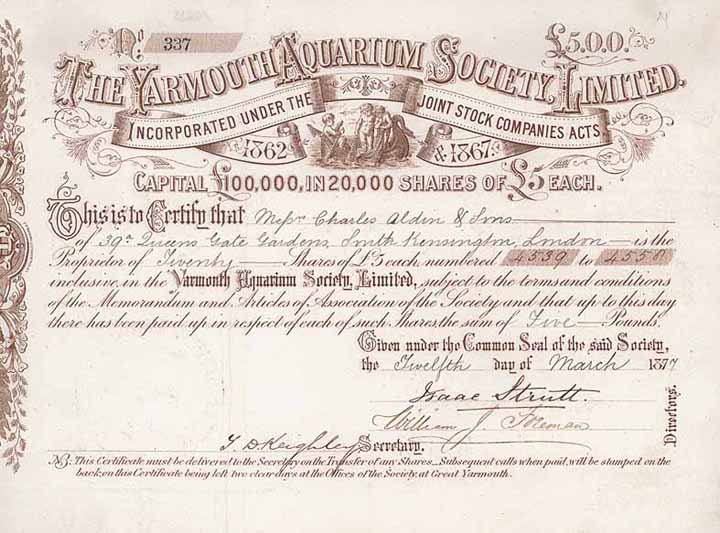 No. 337
£5.0.0.
THE YARMOUTH AQUARIUM SOCIETY, LIMITED.
INCORPORATED UNDER THE JOINT STOCK COMPANIES ACTS
1862 & 1867.
CAPITAL £100,000, IN 20,000 SHARES OF £5 EACH.
This is to Certify that Messrs Charles Aldin & Sons
of 39a Queens Gate Gardens, South Kensington, London is the
Proprietor of Twenty Shares of £5 each numbered 4539 to 4558
inclusive, in the Yarmouth Aquarium Society, Limited, subject to the terms and conditions
of the Memorandum and Articles of Association of the Society and that up to this day
there has been paid up in respect of each of such Shares, the sum of Five Pounds.
Given under the Common Seal of the said Society,
the Twelfth day of March 1877
Isaac Strutt
William J. Foreman
Directors.
T. D. Keighley Secretary.
NB. This Certificate must be delivered to the Secretary on the Transfer of any Shares_Subsequent calls when paid, will be stamped on the
back, on this Certificate being left two clear days at the Offices of the Society, at Great Yarmouth.